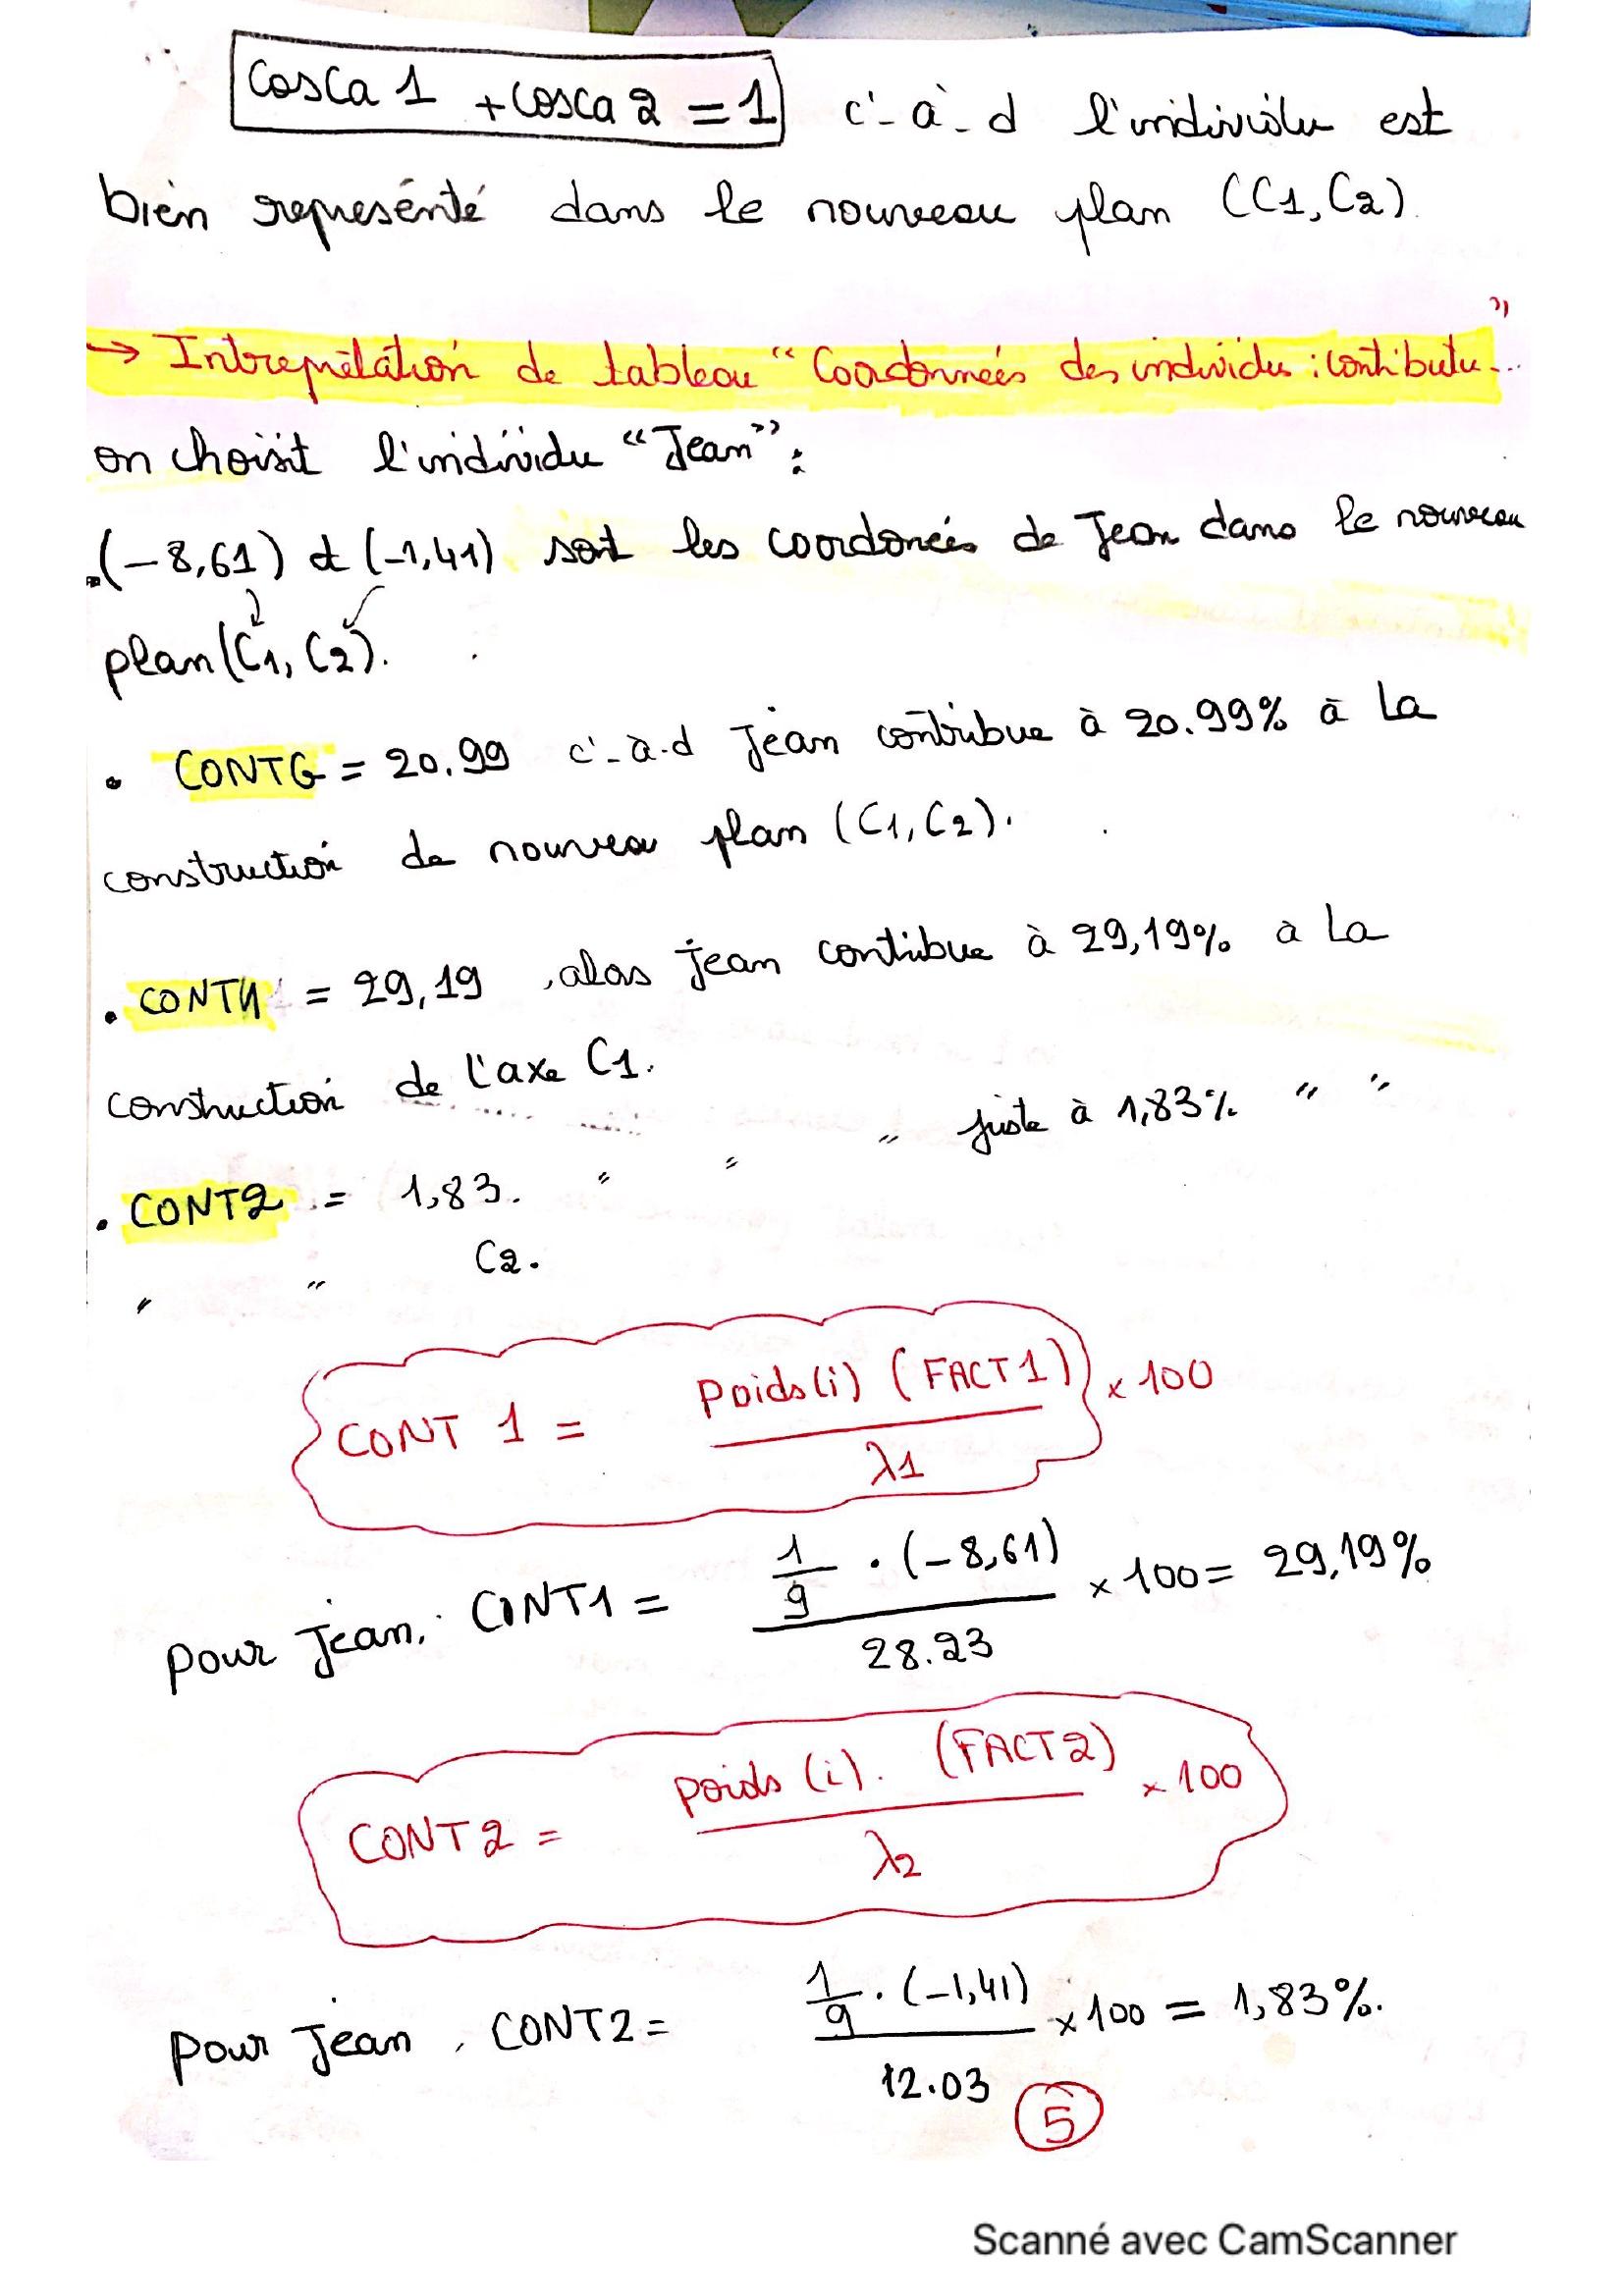 cosca 1 + cosca 2 = 1 c'-à-d l'individu est
bien représenté dans le nouveau plan (C1, C2).
→ Intreprétation de tableau "Coordonnées des individu : contibutu..."
on choisit l'individu "Jean" :
.(-8,61) et (-1,41) sont les coordonées de Jean dans le nouveau
plan (C1, C2).
• CONTG = 20.99 c'-à-d Jean contribue à 20.99% à la
construction de nouveau plan (C1, C2).
• CONT1 = 29,19, alors jean contibue à 29,19% à la
construction de l'axe C1.
• CONT2 = 1,83. " " " juste à 1,83% " "
" " C2.
CONT 1 = Poids(i) (FACT1) / λ1 × 100
pour Jean, CONT1 = 1/9 . (-8,61) / 28.23 × 100 = 29,19%
CONT2 = poids (i). (FACT2) / λ2 × 100
pour Jean, CONT2 = 1/9 . (-1,41) / 12.03 × 100 = 1,83%.
5
Scanné avec CamScanner